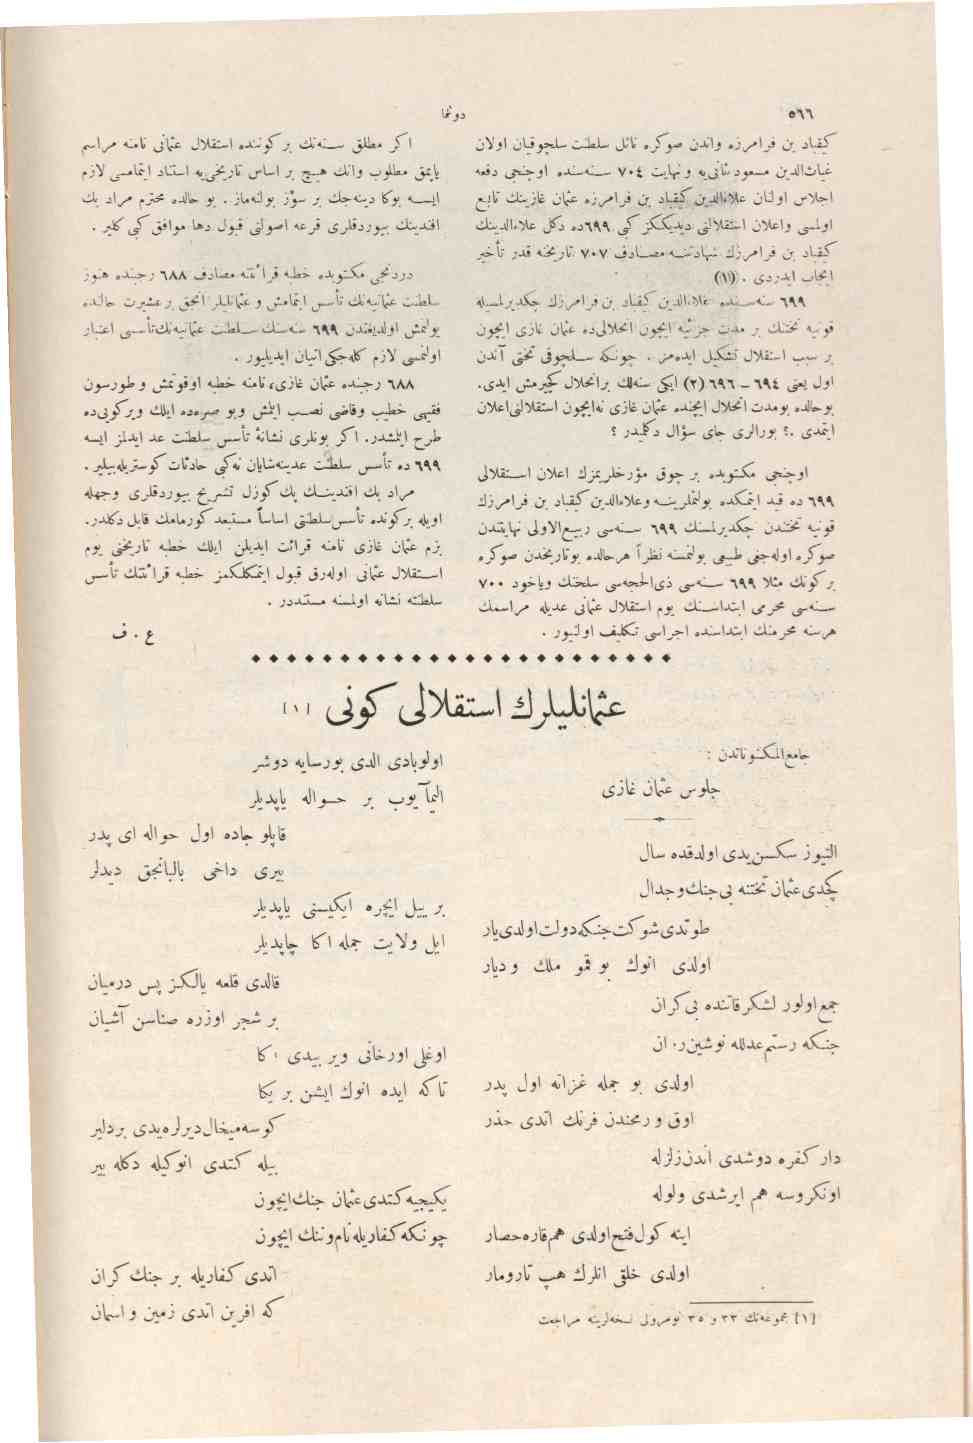 ٥٦٦
دوننما
كيقباد بن فرامرزه واندن صوكره نائل سلطنت سلجوقيان اولان
غياث‌الدين مسعود ثانی‌يه و نهايت ٧٠٤ سنه‌سنده اوچنجی دفعه
اجلاس اولنان علاءالدين كيقباد بن فرامرزه عثمان غازينك تابع
اولمسی واعلان استقلالنی ديديكمز كبی ٦٩٩ده دكل علاءالدينك
كيقباد بن فرامرزك شهادتنه مصادف ٧٠٧ تاريخنه قدر تأخير
ايجاب ايدردی . (١)
٦٩٩ سنه‌سنده علاءالدين كيقباد بن فرامرزك چكديرلمسيله
قونيه تختنك بر مدت جزئيه ايچون انحلالی‌ده عثمان غازی ايچون
بر سبب استقلال تشكيل ايده‌مز . چونكه سلجوقی تختی آندن
اول يعنی ٦٩٤ ـ ٦٩٦ (٢) ايكی سنه‌لك برانحلال كچيرمش ايدی.
بوحالده بومدت انحلال ايچنده عثمان غازی نه‌ايچون استقلالنی‌اعلان
ايتمدی .؟ بورالری جای سؤال دكلميدر ؟
اوچنجی مكتوبده بر چوق مؤرخلريمزك اعلان استقلالی
٦٩٩ ده قيد ايتمكده بولنملرينه وعلاءالدين كيقباد بن فرامرزك
قونيه تختندن چكديرلمسنك ٦٩٩ سنه‌سی ربيع‌الاولی نهايتندن
صوكره اوله‌جغی طبيعی بولنمسنه نظراً هرحالده بوتاريخدن صوكره
بر كونك مثلا ٦٩٩ سنه‌سی ذی‌الحجه‌سی سلخنك وياخود ٧٠٠
سنه‌سی محرمی ابتداسنك يوم استقلال عثمانی عديله مراسمك
هرسنه محرمنك ابتداسنده اجراسی تكليف اولنيور .
اكر مطلق سنه‌نك بر كوننده استقلال عثمانی نامنه مراسم
ياپمق مطلوب وانك هيچ بر اساس تاريخی‌يه استناد ايتمامسی لازم
ايسه بوكا دينه‌جك بر سوز بولنه‌ماز . بو حالده محترم مراد بك
افندينك بيوردقلری قرعه اصولنی قبول دها موافق كبی كلير .
دردنجی مكتوبده خطبه قرائتنه مصادف ٦٨٨ رجبنده هنوز
سلطنت عثمانيه‌نك تأسس ايتمامش و عثمانليلر انجق بر عشيرت حالنده
بولنمش اولديغندن ٦٩٩ سنه‌سنك سلطنت عثمانيه‌نك تأسسی اعتبار
اولنمسی لازم كله‌جكی اتيان ايديليور .
٦٨٨ رجبنده عثمان غازی، نامنه خطبه اوقوتمش و طورسون
فقيهی خطيب وقاضی نصب ايتمش وبو صره‌ده ايلك ويركويی‌ده
طرح ايتمشدر. اكر بونلری نشانهٔ تأسس سلطنت عد ايدلمز ايسه
٦٩٩ ده تأسس سلطنت عدينه‌شايان نه‌كبی حادثات كوستريله‌بيلير.
مراد بك افندينك پك كوزل تشريح بيوردقلری وجهله
اويله بركونده تأسس‌سلطنتی اساساً مستبعد كورمامك قابل دكلدر.
بزم عثمان غازی نامنه قرائت ايديلن ايلك خطبه تاريخنی يوم
استقلال عثمانی اوله‌رق قبول ايتمكلكمز خطبه قرائتنك تأسس
سلطنته نشانه اولمسنه مستنددر .
ع . ف
عثمانليلرك استقلالی كونی [١]
جامع‌المكنوناتدن :
جلوس عثمان غازی
التيوز سكسن‌يدی اولدقده سال
كچدی‌عثمان تختنه بی‌جنك‌وجدال
طوتدی‌شوكت‌جنكه‌دولت‌اولدی‌يار
اولدی انوك بو قمو ملك و ديار
جمع‌اولور لشكر قاتنده بی‌كران
جنكه رستم‌عدلله نوشين‌روان
اولدی بو جمله غزانه اول پدر
اوق و رمحندن فرنك اتدی حذر
دار كفره دوشدی اندن‌زلزله
اونكروسه هم ايرشدی ولوله
اينه كول‌فتح‌اولدی هم‌قاره‌حصار
اولدی خلقی انلرك هپ تارومار
اولوبادی الدی بورسايه دوشر
النمآيوب بر حواله ياپديلر
قاپلو جاده اول حواله ای پدر
بيری داخی بالبانجق ديدلر
بر ييل ايچره ايكيسنی ياپديلر
ايل ولايت جمله اكا چاپديلر
قالدی قلعه يالكز پس درميان
بر شجر اوزره صناسن آشيان
اوغلی اورخانی وير بيدی اكا
تاكه ايده انوك ايشن بر يكا
كوسه‌ميخال‌ديرلره‌يدی بردلير
بيله كتدی انوكيله دكله بير
يكيجيه‌كتدی‌عثمان جنك‌ايچون
چونكه‌كفاريله‌نام‌وننك ايچون
اتدی كفاريله بر جنك كران
كه افرين اتدی زمين و اسمان
[١] مجموعه‌نك ٣٣ و ٣٥ نومرولی نسخه‌لرينه مراجعت